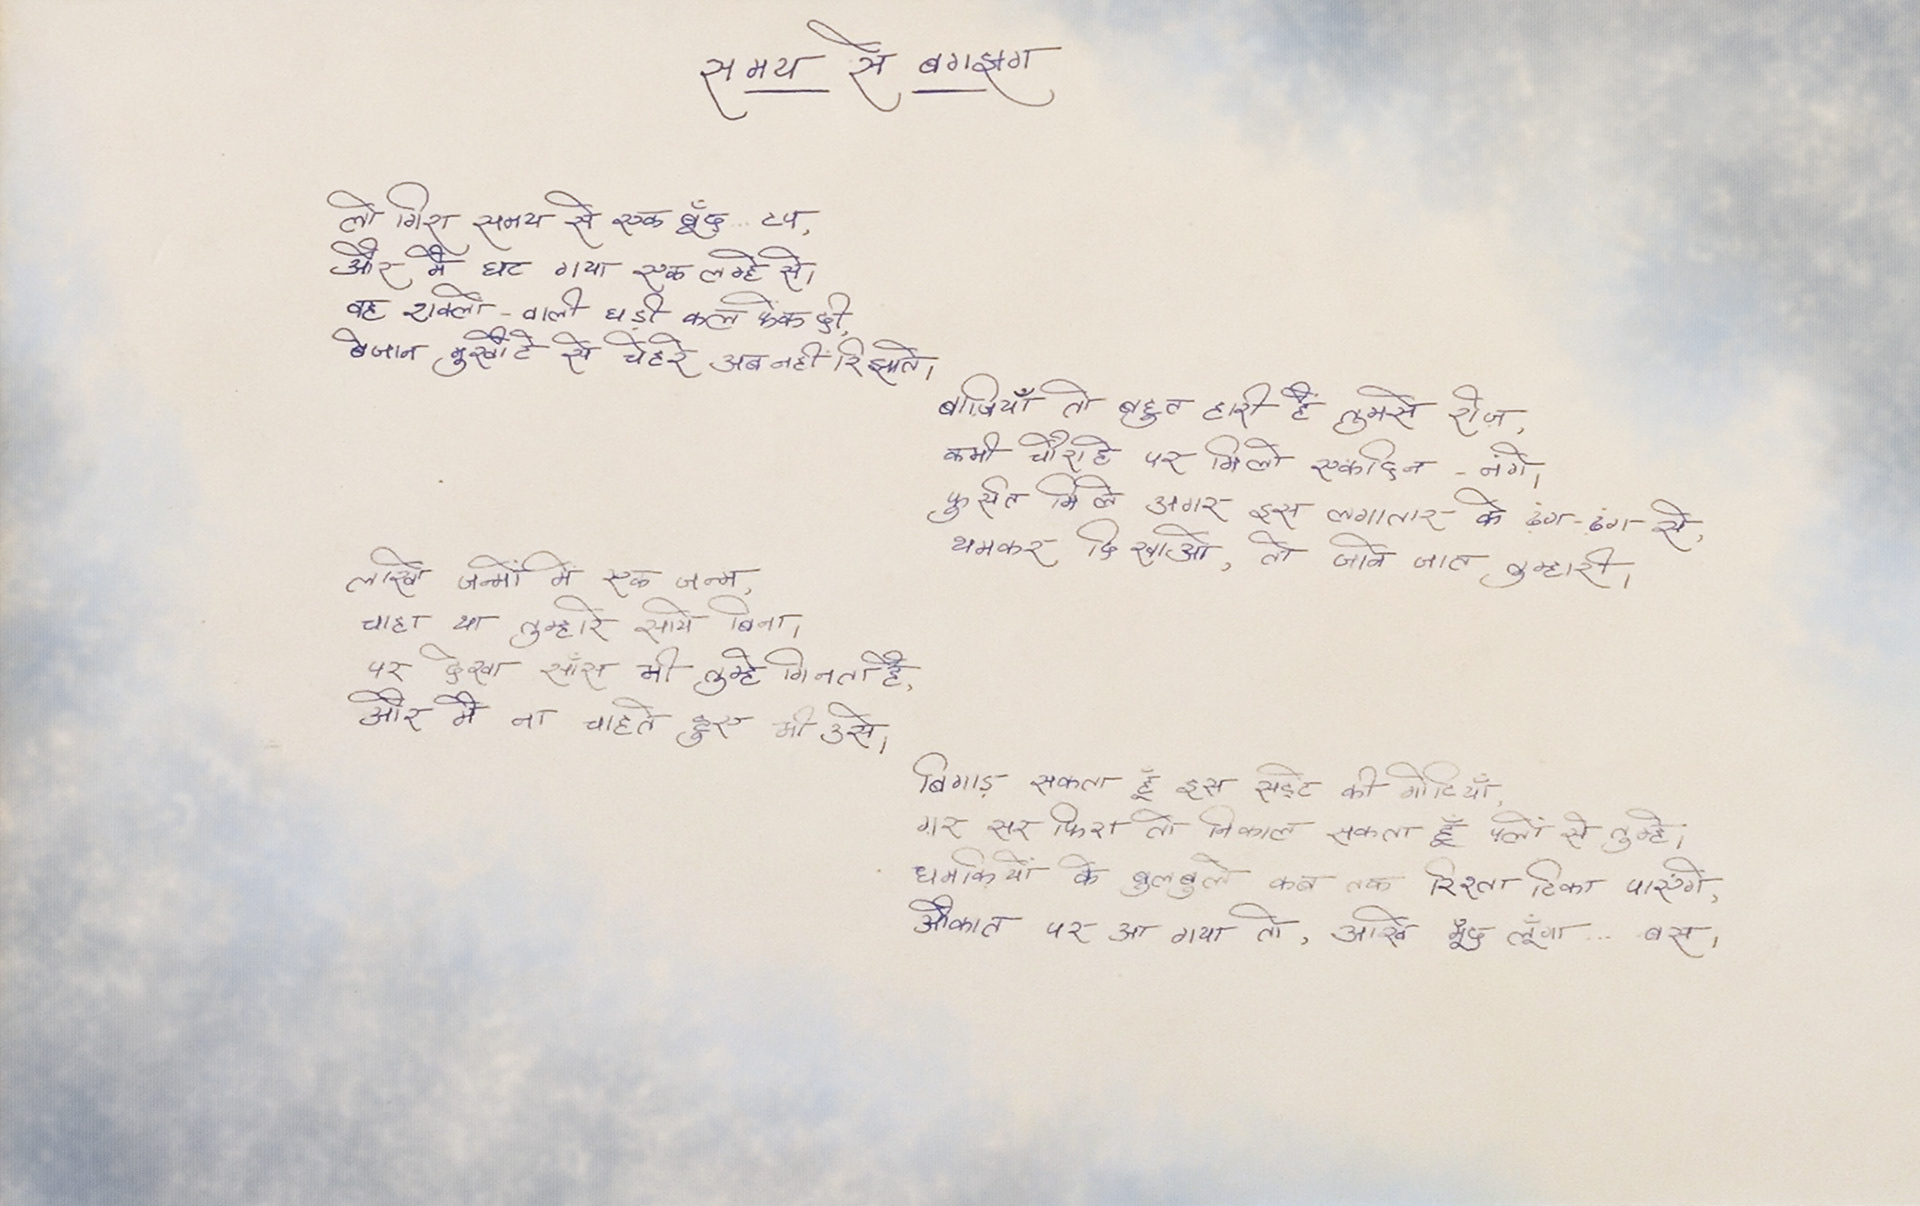 समय से बगझग
लो गिरा समय से एक बूँद .. टप,
और मैं घट गया एक लम्हे से।
वह शक्लों - वाली घड़ी कल फेंक दी,
बेजान मुखौटे से चेहरे अब नहीं रिझाते।
बाज़ियाँ तो बहुत हारी हैं तुमसे रोज़,
कभी चौराहे पर मिलो एक दिन - नंगे,
फुर्सत मिले अगर इस लगातार के ढंग - ढंग से,
थमकर दिखाओ, तो जाने जात तुम्हारी।
लाखों जन्मों में एक जन्म,
चाहा था तुम्हारे साये बिना,
पर देखा साँस भी तुम्हे गिनता है,
और मैं ना चाहते हुए भी उसे।
बिगाड़ सकता हूँ इस की गोटियाँ,
ग़र सर फिरा तो निकाल सकता हूँ पलों से तुम्हे।
धमकियों के बुलबुले कब तक रिश्ता टिका पाएंगे,
औकात पर आ गया तो, आखें मूँद लूँगा ... बस।